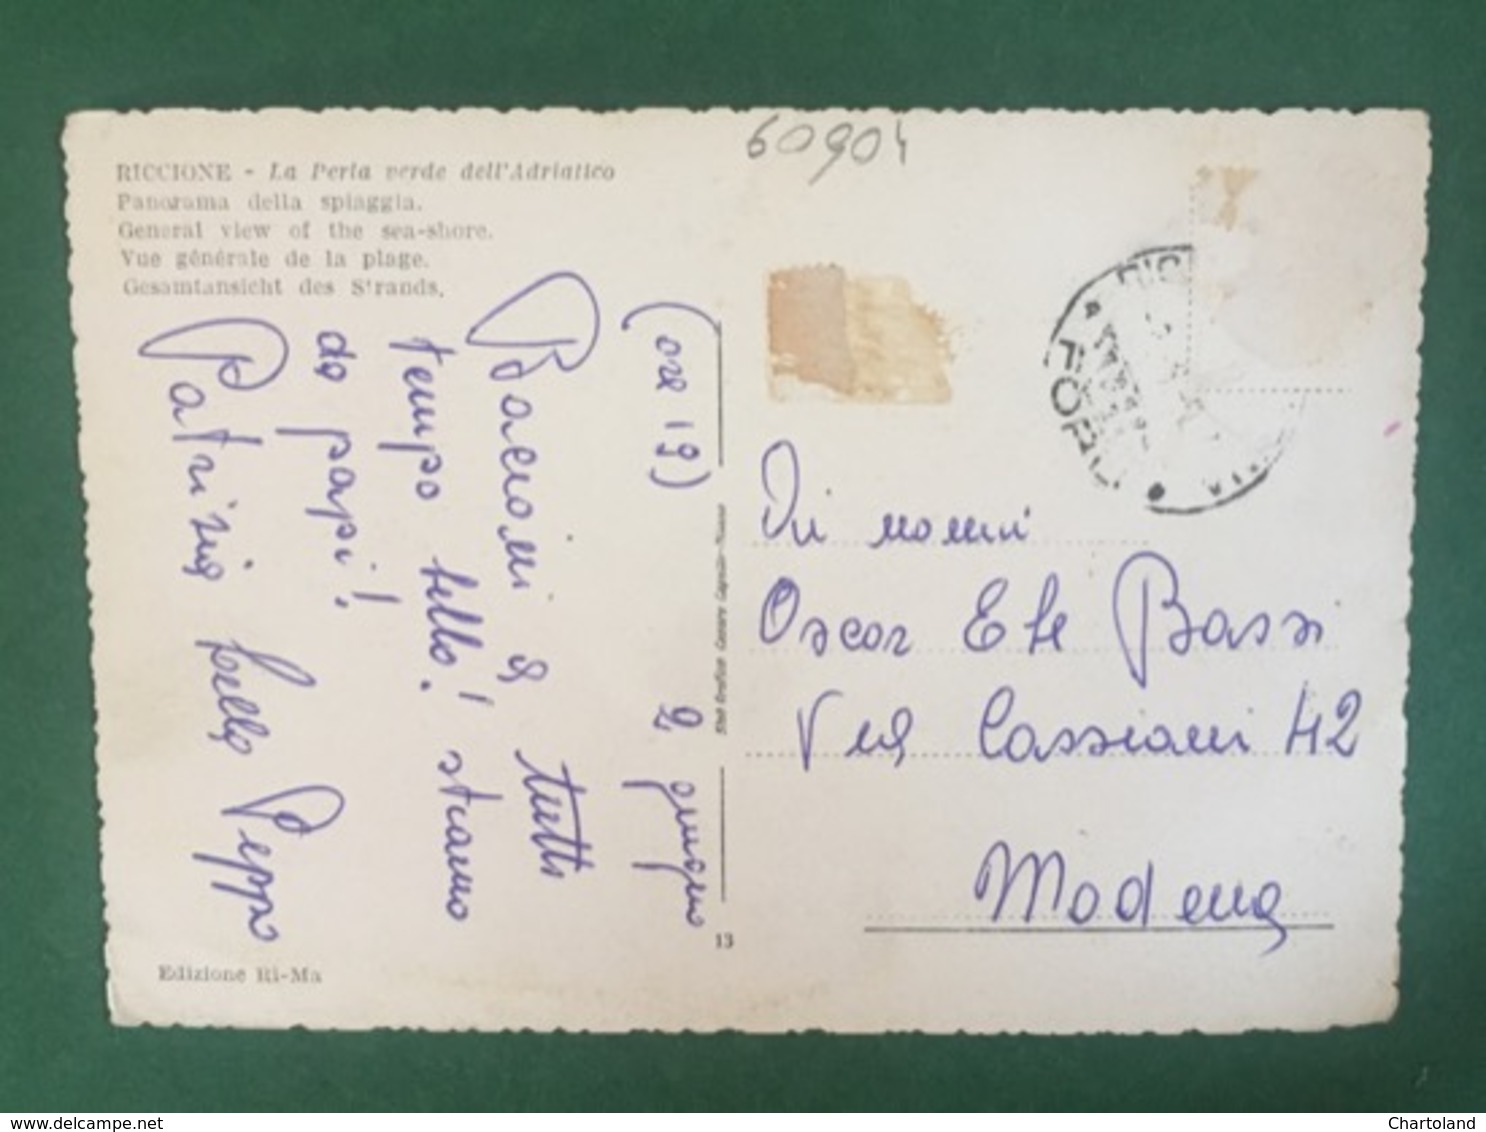 60904
RICCIONE - La Perla verde dell'Adriatico
Panorama della spiaggia.
General view of the sea-shore.
Vue générale de la plage.
Gesamtansicht des Strands.
(ore 19) 2 giugno
Bacioni a tutti
tempo bello! stiamo
da papi!
Patrizia Lella Peppo
13
Edizione Ri-Ma
Oscar Ele Bassi
Via Cassiani 42
Modena
FORLI
delcampe.net
Chartoland